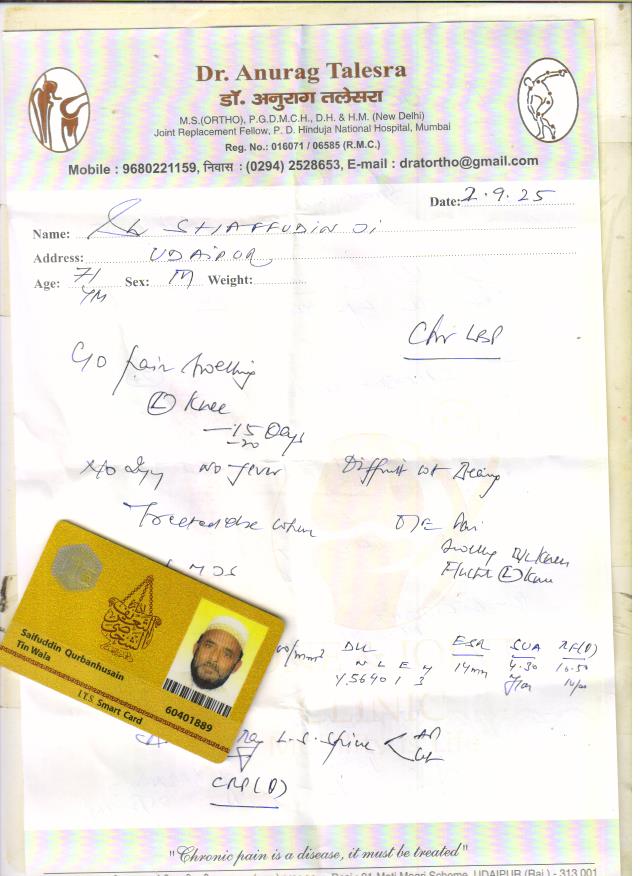 Dr. Anurag Talesra
डॉ. अनुराग तलेसरा
M.S.(ORTHO), P.G.D.M.C.H., D.H. & H.M. (New Delhi)
Joint Replacement Fellow, P. D. Hinduja National Hospital, Mumbai
Reg. No.: 016071 / 06585 (R.M.C.)
Mobile : 9680221159, निवास : (0294) 2528653, E-mail : dratortho@gmail.com
Date: 2.9.25
Name: Sh SHAFFUDIN Ji
Address: UDAIPUR
Age: 71 Sex: M Weight:
Chr LBP
C/O Pain Swelling
(L) Knee
15 Days
20
No fever Difficult wt Bearing
O/E Pain
Swelling B/L Knee
(L) Knee
/mm³ DLC ESR SUA RF(Q)
N L E M 14mm 4.30 16.50
56 40 1 3
L-S-Spine < AP
CRP(Q)
Saifuddin Qurbanhusain
Tin Wala
I.T.S. Smart Card
60401889
"Chronic pain is a disease, it must be treated"
Moti Magri Scheme, UDAIPUR (Raj.) - 313 001